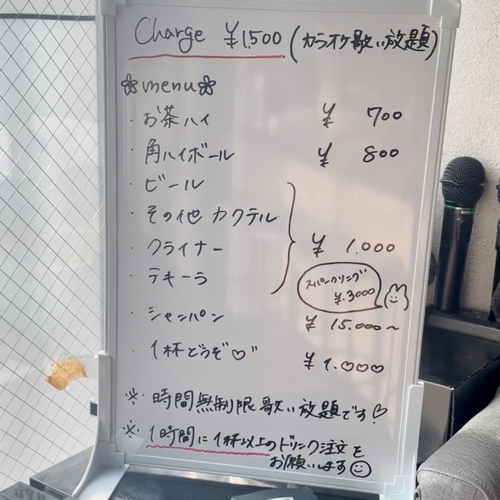 Charge ¥1,500 (カラオケ歌い放題)
menu
・お茶ハイ ¥ 700
・角ハイボール ¥ 800
・ビール
・その他 カクテル
・クライナー ¥ 1.000
・テキーラ
スパークリング
¥.3000
・シャンパン ¥ 15.000~
・1杯どうぞ♡ ¥ 1.000
※ 時間無制限歌い放題です♡
※ 1時間に1杯以上のドリンク注文を
お願いします☺